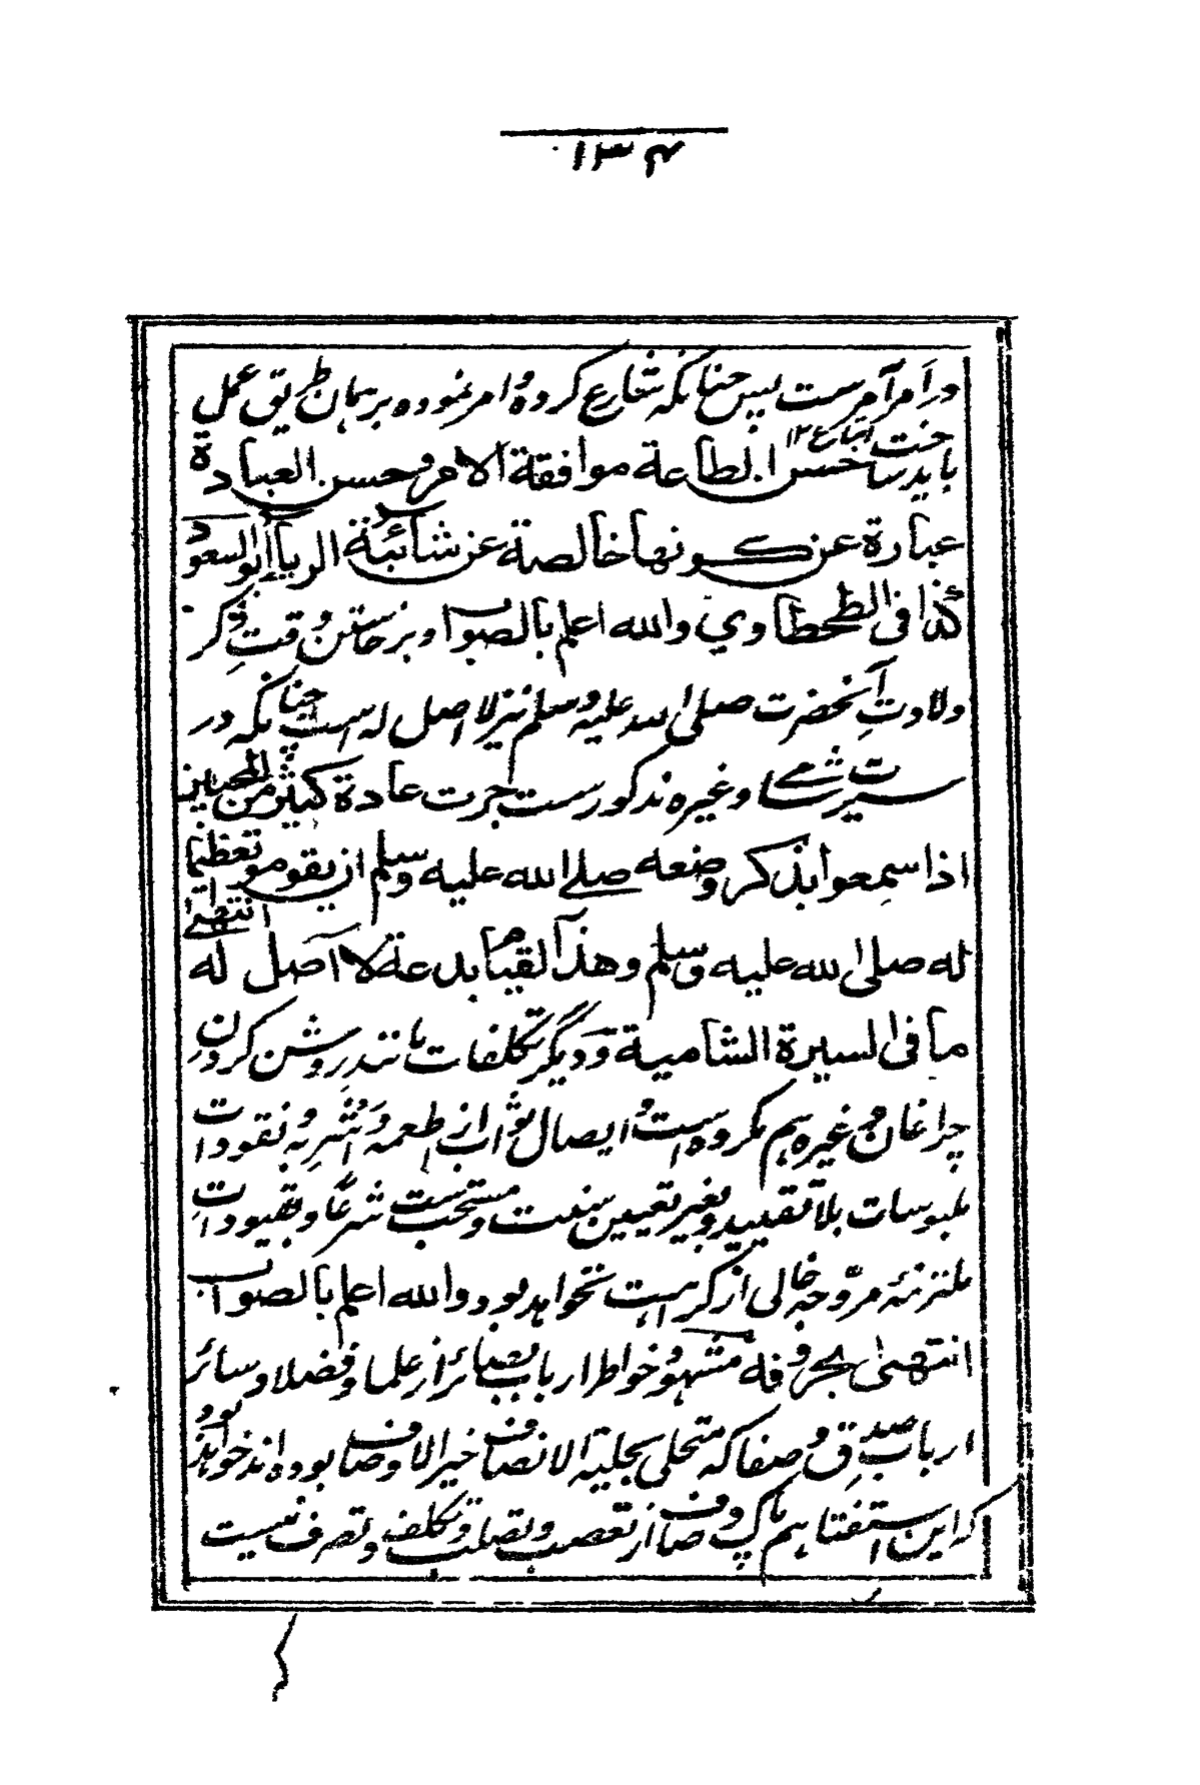 ۱۳۴
در امر آمر ست پس چنانکه شارع کرده و امر نموده بر همان طریق عمل
باید ساخت اتباع ۱۲ حسن الطاعة موافقة الامر و حسن العبادة
عبارة عن كونها خالصة عن شائبة الرياء ابو السعود
كذا فى الطحطاوي والله اعلم بالصواب و برخاستن وقت ذکر
ولادتِ آنحضرت صلی الله علیه وسلم نیز لا اصل له است چنانکه در
سیرت شامے و غیره مذکور ست جرت عادة كثير من المحبين
اذا سمعوا بذكر وضعه صلے الله عليه وسلم ان يقوموا تعظيما
له صلى الله عليه وسلم وهذا القيام بدعة لا اصل له انتهىٰ
ما فى السيرة الشامية و دیگر تکلفات مانند روشن کردن
چراغان و غیره هم مکروه است و ایصال ثواب از اطعمه و اشربه و نقودات
ملبوسات بلا تقیید و بغیر تعیین سنت و مستحب ست شرعًا و بقیودات
ملتزمهٔ مروّجه خالی از کراهت نخواهد بود والله اعلم بالصواب
انتهىٰ بحروفه مشهود خواطر ارباب بصائر از علما و فضلا و سائر
ارباب صدق و صفا که متحلی بحلیة الانصاف خیر الاوصاف بوده اند خواهد بود
که این استفتا هم پاک و صاف از تعصب و تصلب و تکلف و تصرف نیست